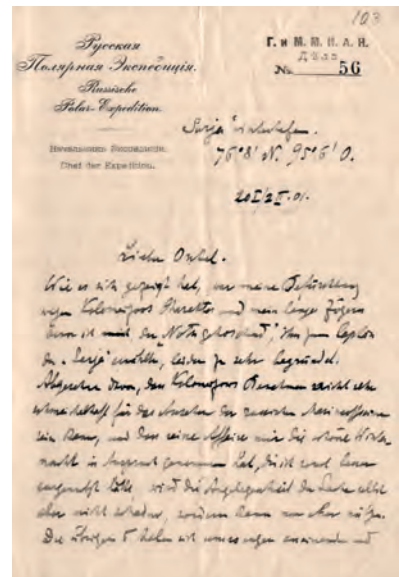 103
Русская
Полярная Экспедиція.
Russische
Polar-Expedition.
Начальникъ Экспедиціи.
Chef der Expedition.
Г. и М. М. И. А. Н.
Дѣло
№ 56
"Sarja" Winterhafen.
76°8' N. 95°6' O.
20 I/2 II. 01.
Lieber Onkel.
Wie es sich gezeigt hat, war meine Befürchtung
wegen Kolomeizoos Charakter und mein langes Zögern
ihn zum Capitän
der "Sarja" leider zu sehr begründet.
Abgesehen davon, dass Kolomeizoos Benehmen nicht sehr
schmeichelhaft für das Ansehen der russischen Marineofficiere
sein kann, und dass seine Affaire mir die schöne
in Anspruch genommen hat, die ich
hätte, wird die Angelegenheit der Sache selbst
aber nicht schaden, sondern kann nur eher nützen.
Die übrigen 5 haben sich um so enger und